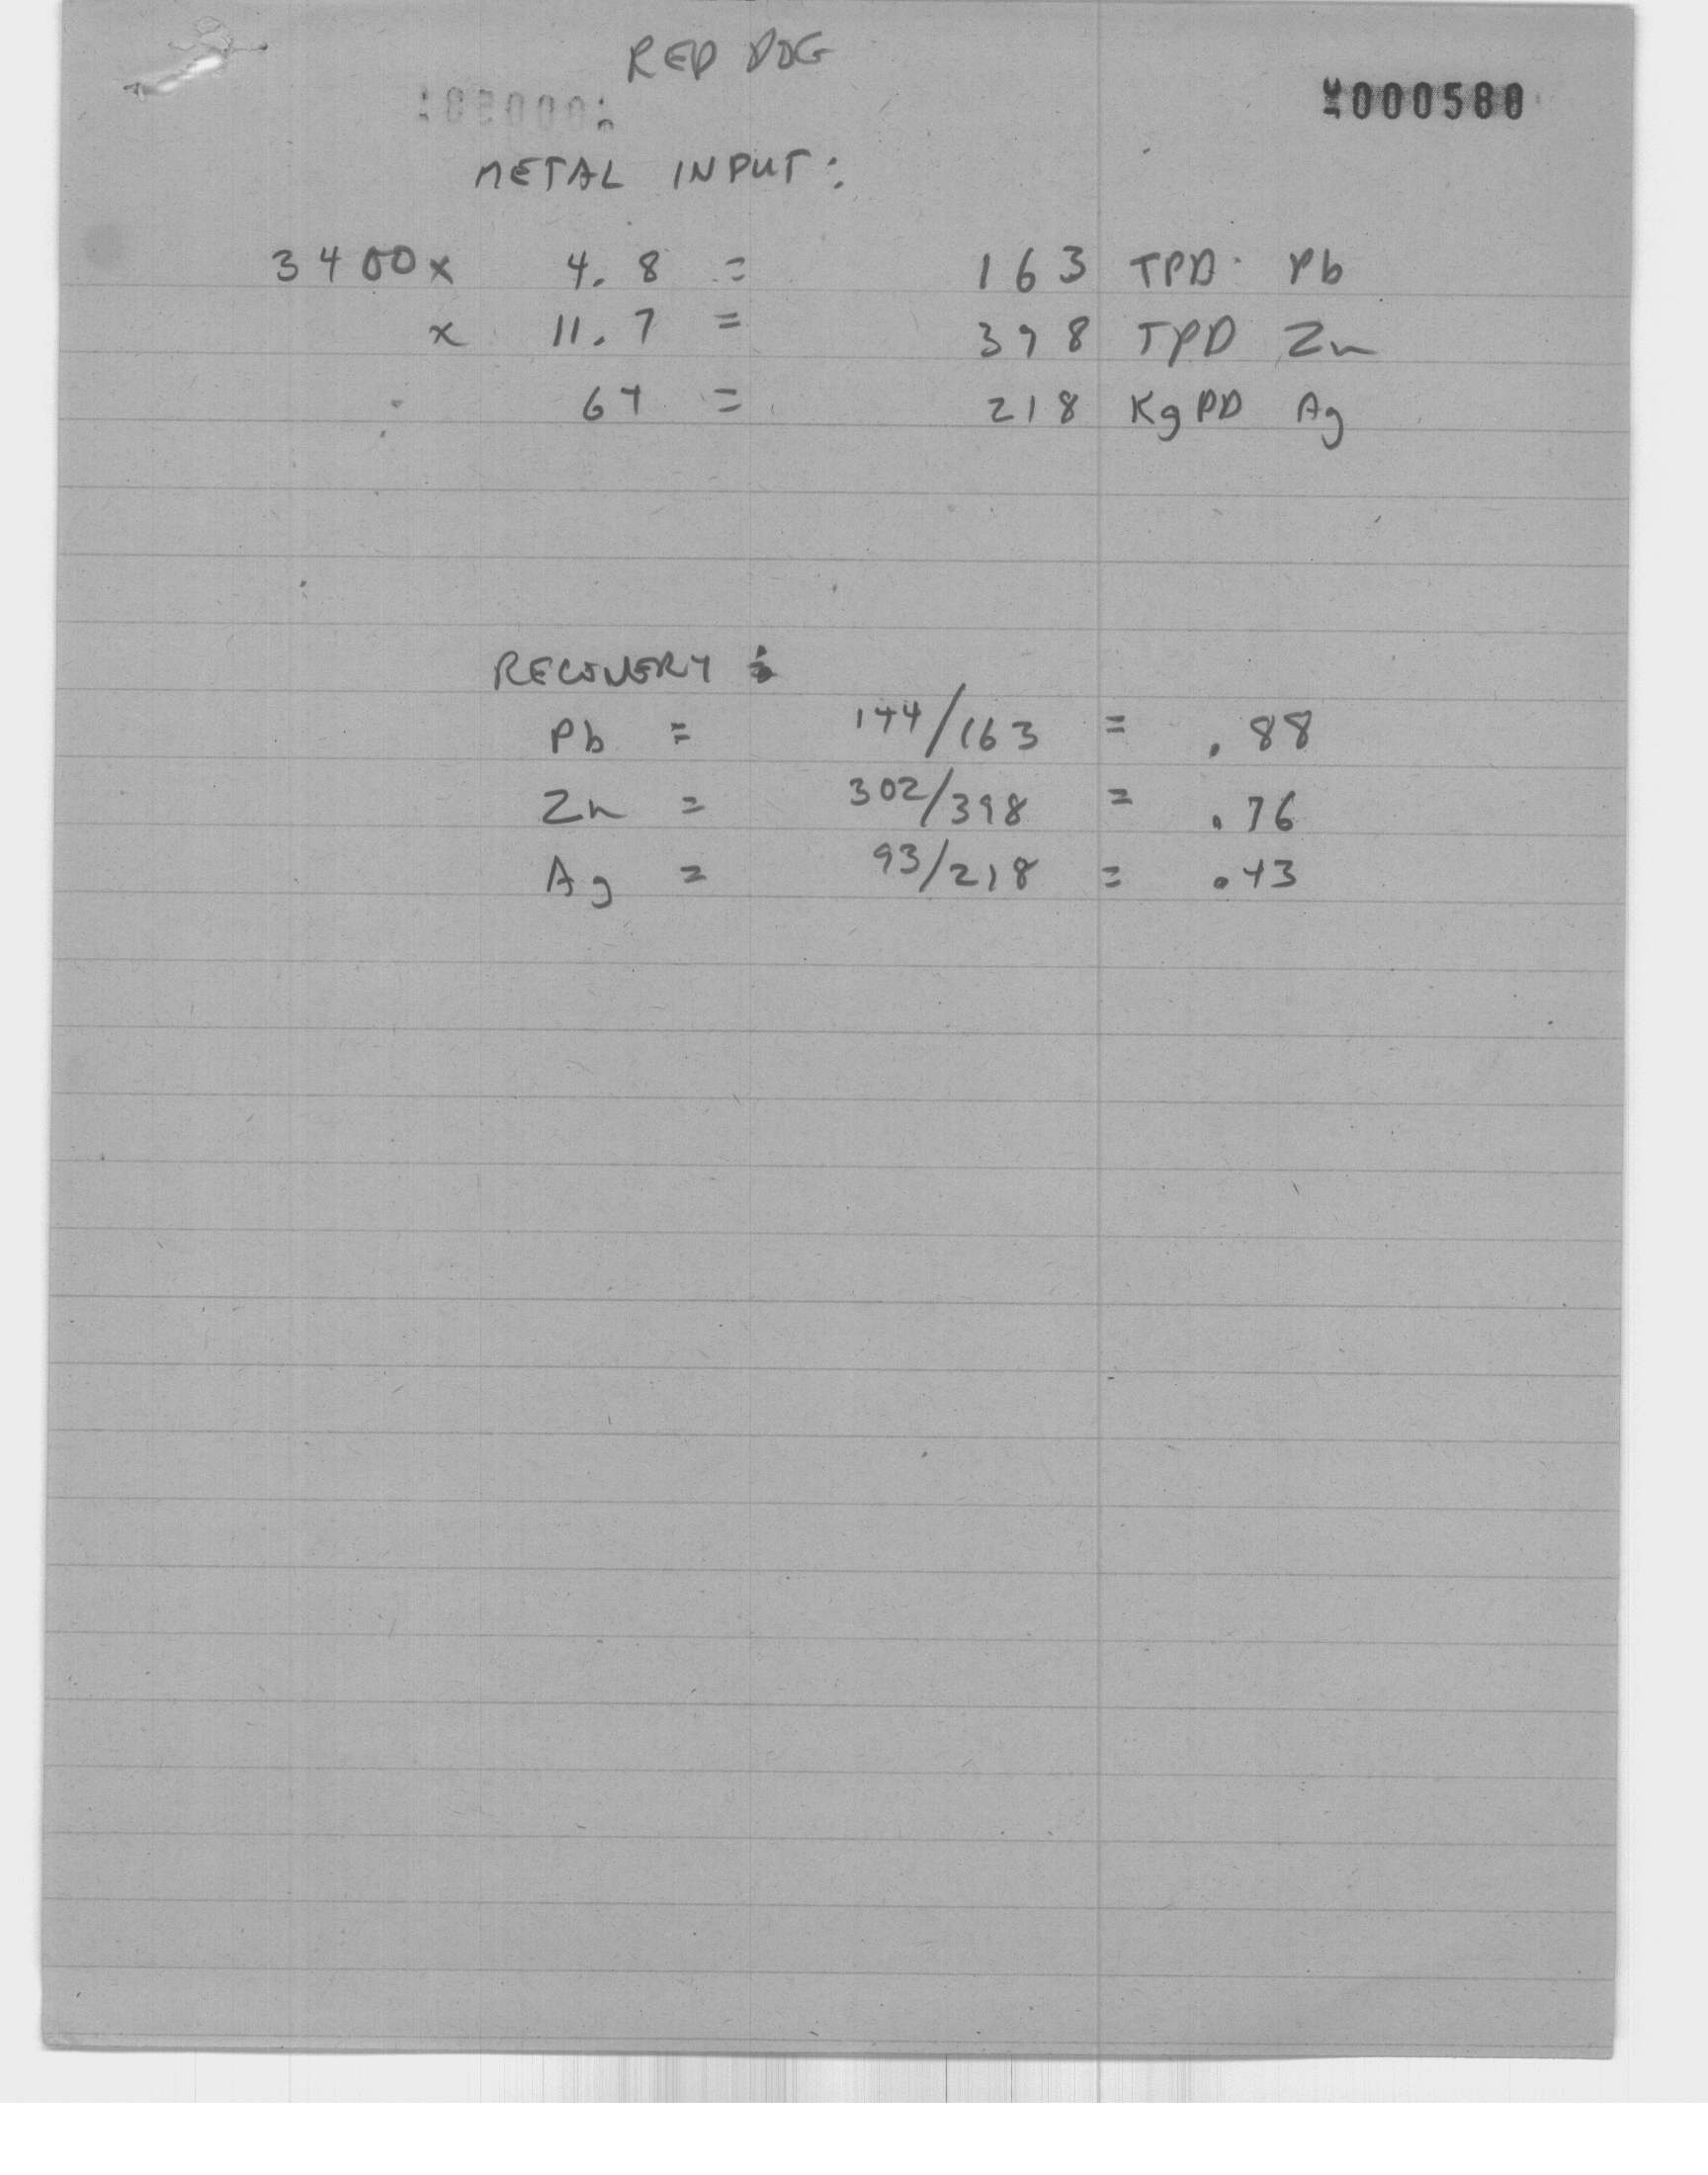 RED DOG
000580
METAL INPUT:
3400 x 4.8 = 163 TPD Pb
x 11.7 = 398 TPD Zn
64 = 218 KgPD Ag
RECOVERY :
Pb = 144/163 = .88
Zn = 302/398 = .76
Ag = 93/218 = .43